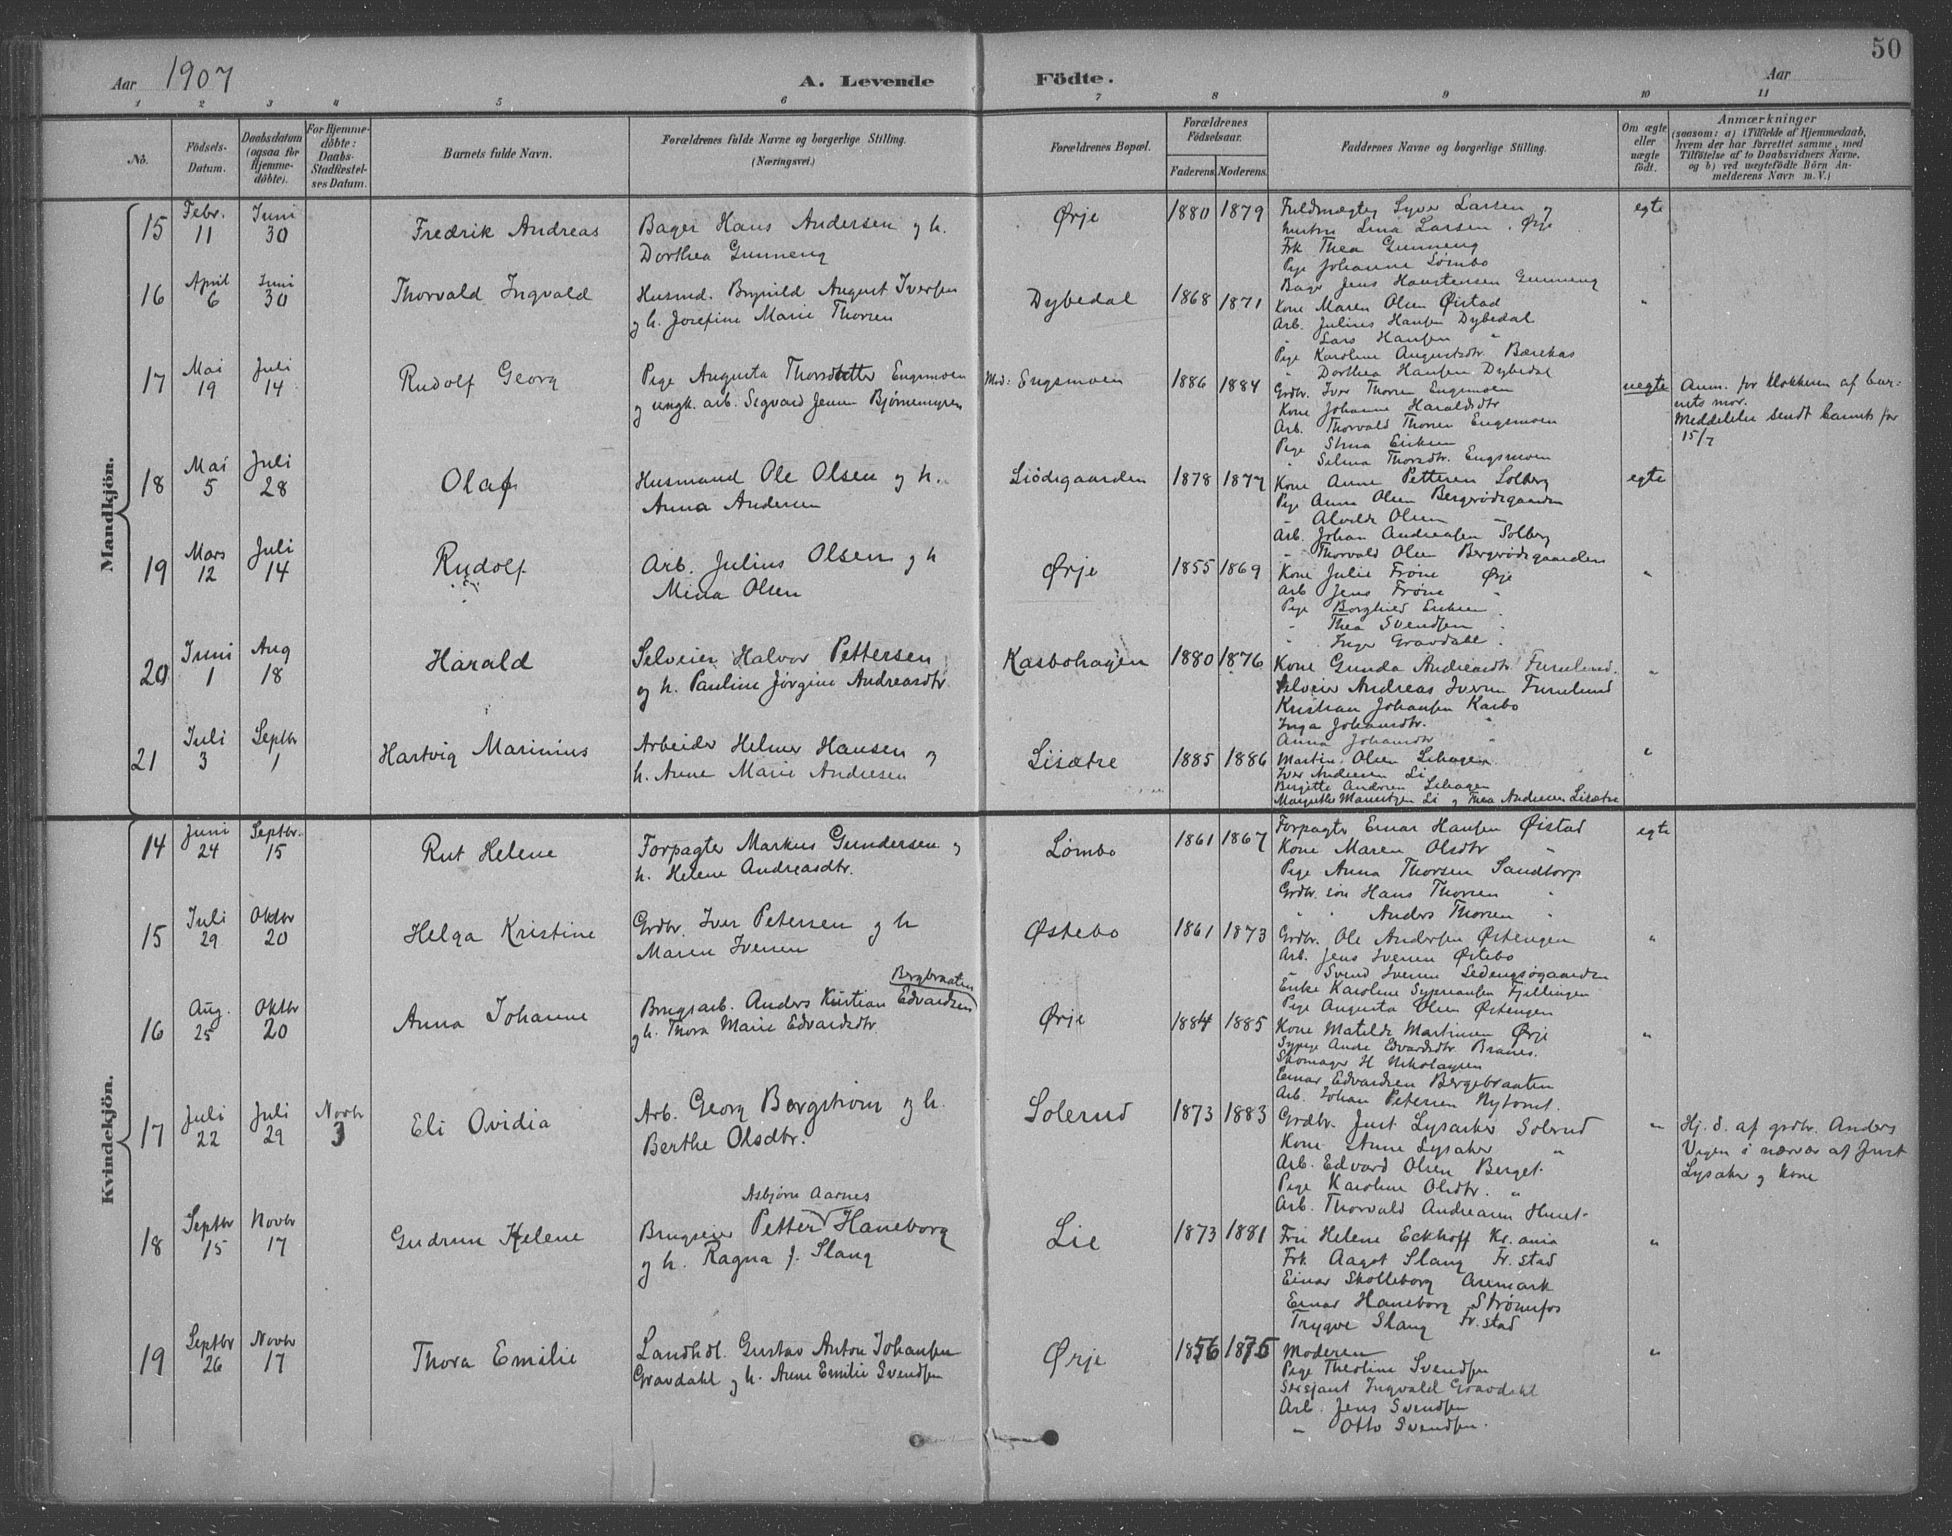 50
Aar 1907 A. Levende Födte. Aar
1 2 3 4 5 6 7 8 9 10 11
No.
Födsels-Datum.
Daabsdatum (ogsaa for Hjemme-döbte).
For Hjemme-döbte: Daabs-Stadfæstel-ses Datum.
Barnets fulde Navn.
Forældrenes fulde Navne og borgerlige Stilling.
(Næringsvei.)
Forældrenes Bopæl.
Forældrenes Födselsaar.
Faderens. Moderens.
Faddernes Navne og borgerlige Stilling.
Om ægte eller uægte födt.
Anmærkninger
(saasom: a) i Tilfælde af Hjemmedaab,
hvem der har forrettet samme, med
Tilföielse af to Daabsvidners Navne,
og b) ved uægtefödte Börn An-
melderens Navn m. V.)
Mandkjön.
15 Febr. 11 Juni 30 Fredrik Andreas
Bager Hans Andersen og h.
Dorthea Gunneng
Ørje 1880 1879
Fuldmægtig Syver Larsen og
hustru Lina Larsen. Ørje
Frk Thea Gunneng
Pige Johanne Lømbo
Bager Jens Haustensen Gunneng
egte
16 April 6 Juni 30 Thorvald Ingvald
Husmd. Brynild August Iversen
og h. Josefine Marie Thorsen
Dybedal 1868 1871
Kone Maren Olsen Øistad
Arb. Julius Hansen Dybedal
" Lars Hansen "
Pige Karoline Augustsdtr. Bærekas
" Dorthea Hansen Dybedal
"
17 Mai 19 Juli 14 Rudolf Georg
Pige Augusta Thorsdatter Engsmoen
og ungk. arb. Sigvard Jensen Bjørnemyren
Mod: Engsmoen 1886 1884
Grdbr. Iver Thorsen Engsmoen
Kone Johanne Haraldsdtr
Arb. Thorvald Thorsen Engsmoen
Pige Stina Eriksen
" Selma Thorsdtr. Engsmoen
uegte
Anm. for klokkeren af bar-
nets mor.
Meddelelse sendt barnets far
15/7
18 Mai 5 Juli 28 Olaf
Husmand Ole Olsen og h.
Anna Andersen
Liødsgaarden 1878 1877
Kone Anne Pettersen Solberg
Pige Anna Olsen Bergerødsgaarden
" Alvilde Olsen "
Arb. Johan Andreasen Solberg
" Thorvald Olsen Bergerødsgaarden
egte
19 Mars 12 Juli 14 Rudolf
Arb. Julius Olsen og h
Mina Olsen
Ørje 1855 1869
Kone Julie Frøne Ørje
Arb Jens Frøne "
Pige Borghild Eriksen "
" Thea Svendsen "
" Inger Gravdahl "
"
20 Juni 1 Aug 18 Harald
Selveier Halvor Pettersen
og h. Pauline Jørgine Andreasdtr.
Kasbohagen 1880 1876
Kone Gunda Andreasdtr Furulund.
Selveier Andreas Iversen Furulund
Kristian Johansen Kasbo
Inga Johansdtr. "
Anna Johansdtr "
"
21 Juli 3 Septbr 1 Hartvig Marinius
Arbeider Helmer Hansen og
h. Anne Marie Andresen
Lisætre 1885 1886
Martin Olsen Lihagen
Iver Andresen Li
Birgitte Andersen Lihagen
Margrethe Mauritzen Li og Thea Andresen Lisætre
"
Kvindekjön.
14 Juni 24 Septbr. 15 Rut Helene
Forpagter Markus Gundersen og
h. Helene Andreasdtr.
Lømbo 1861 1867
Forpagter Einar Hansen Øistad
Kone Maren Olsdtr "
Pige Anna Thorsen Sandtorp
Grdbr. søn Hans Thorsen "
" " Anders Thorsen "
egte
15 Juli 29 Oktbr 20 Helga Kristine
Grdbr. Iver Petersen og h
Maren Iversen
Østebo 1861 1873
Grdbr. Ole Andersen Østengen
Arb. Jens Iversen Østebo
" Svend Iversen Ledengsøgaarden
Enke Karoline Syversen Fjellingen
Pige Augusta Olsen Østengen
"
16 Aug. 25 Oktbr 20 Anna Johanne
Bergbraaten
Brugsarb. Anders Kristian Edvardsen
og h. Thora Marie Edvardsdtr.
Ørje 1884 1885
Kone Matilde Martinsen Ørje
Sypige Andr. Edvardsdtr. Branes.
Skomager H Nikolaysen
Einar Edvardsen Bergebraaten
Arb. Johan Petersen Nytomt.
"
17 Juli 22 Juli 29 Novbr 3 Eli Ovidia
Arb. Georg Bergstrøm og h.
Berthe Olsdtr.
Solerud 1873 1883
Grdbr. Just Lysaker Solerud
Kone Anne Lysaker "
Arb. Edvard Olsen Berget.
Pige Karoline Olsdtr. "
Arb. Thorvald Andreasen
"
Hj. d. af grdbr. Anders
Vigen i nærvær af Just
Lysaker og kone
18 Septbr 15 Novbr 17 Gudrun Helene
Asbjørn Aarnes
Brugseier Petter Haneborg
og h. Ragna f. Slang
Lie 1873 1881
Fru Helene Eckhoff Kr. ania
Frk Aagot Slang Fr. stad
Einar Skolleborg Aremark
Einar Haneborg Strømsfos
Trygve Slang Fr. stad
"
19 Septbr 26 Novbr 17 Thora Emilie
Landhdl. Gustav Anton Johansen
Gravdahl og h. Anne Emilie Svendsen
Ørje 1856 1875
Moderen
Pige Theoline Svendsen
Sersjant Ingvald Gravdahl
Arb. Jens Svendsen
" Otto Svendsen.
"